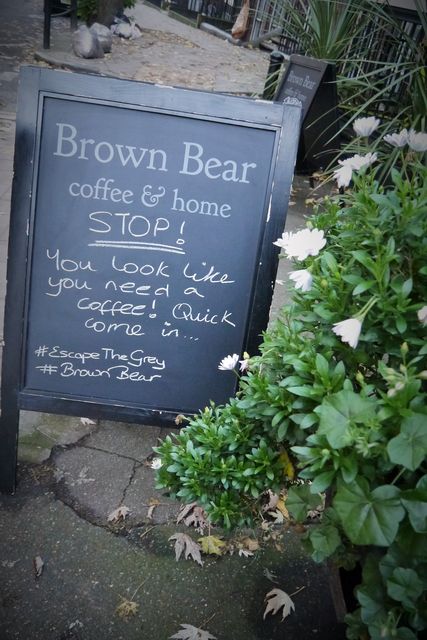 Brown Bear
coffee & home
STOP!
You look like
you need a
coffee! Quick
come in...
#EscapeTheGrey
#BrownBear
Brown Bear